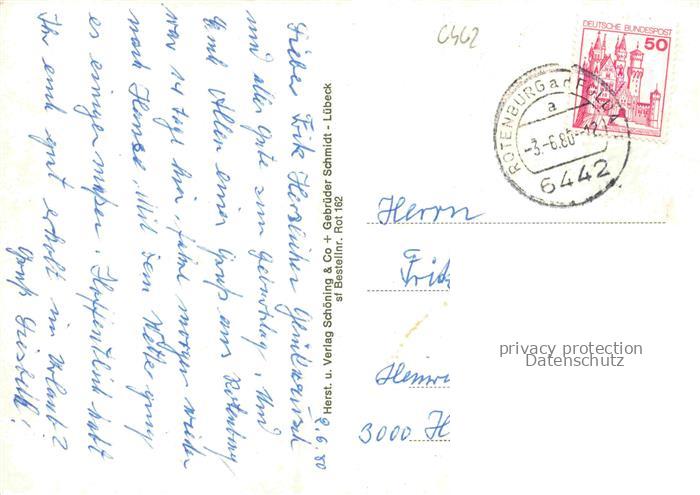 6442
DEUTSCHE BUNDESPOST
50
ROTENBURG a d FULDA
a
-3.-6.80-12
6442
2.6.80
Lieber Fritz Herzlichen Glückwunsch
und alles Gute zum Geburtstag. Und
Euch Allen einen Gruß aus Rotenburg
war 14 Tage hier, fahre morgen wieder
nach Hause. Mit dem Wetter ging
es einigermaßen. Hoffentlich habt
Ihr euch gut erholt im Urlaub?
Gruß
Herst. u. Verlag Schöning & Co + Gebrüder Schmidt - Lübeck
sf Bestellnr. Rot 162
Herrn
Fritz
privacy protection
Datenschutz
Heinri
3000 H